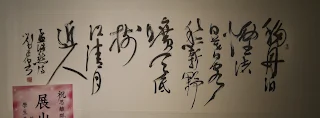 移舟泊
煙渚
日暮客
愁新野
曠天低
樹
江清月
近人
孟浩然詩
祝
展出